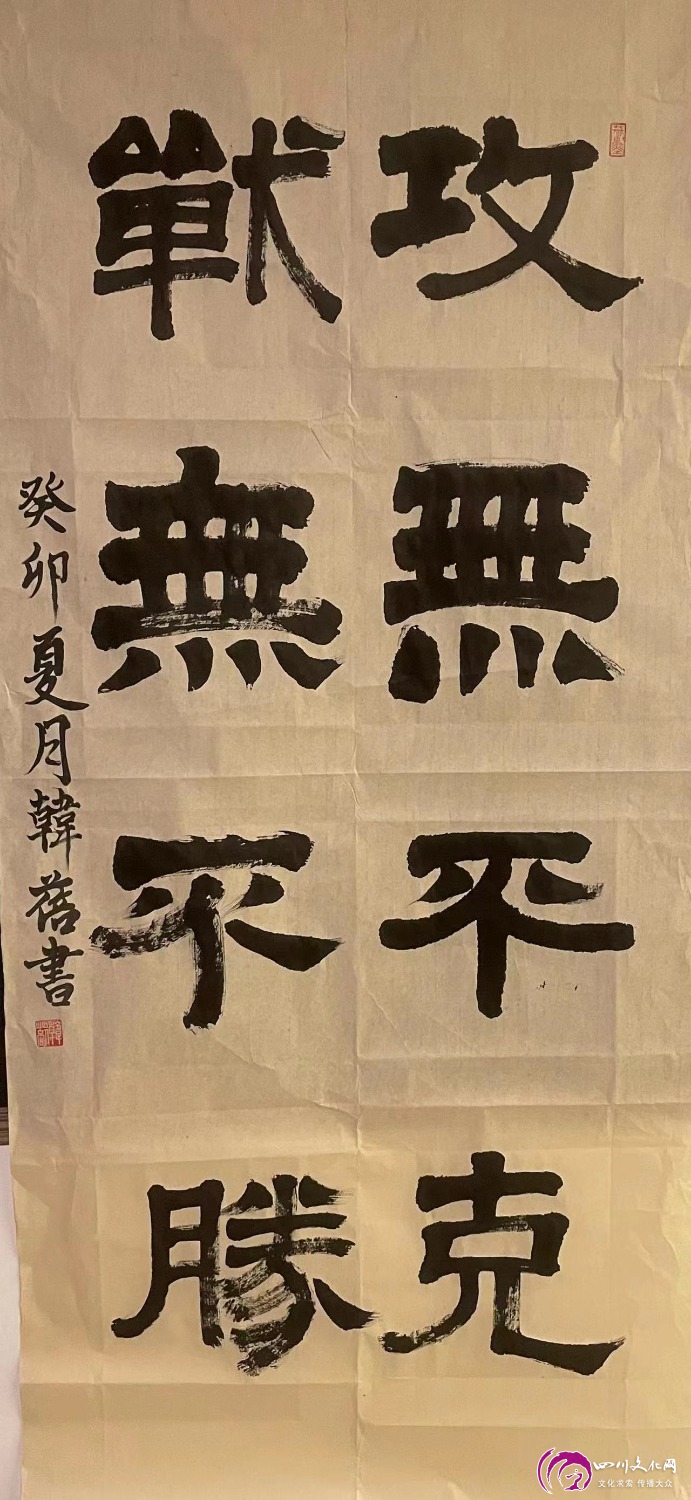 攻無平克
戰無不勝
癸卯夏月韓書
四川文化网
文化求索 传播大众